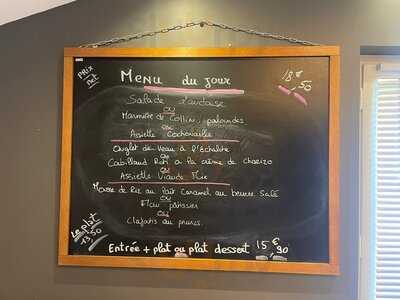 Prix
net
Menu du jour
18 € 50
Salade Landaise
ou
Marmitte de Collin palourdes
ou
Assiette Cochonaille
Onglet de Veau à l'échalote
ou
Cabillaud Roti a la crème de chorizo
ou
Assiette Viande Mie
Mousse de Riz au lait Caramel au beurre Salé
ou
Flan pâtissier
ou
Clafatis au prunes.
Le plat
13,50
Entrée + plat ou plat dessert 15 € 90